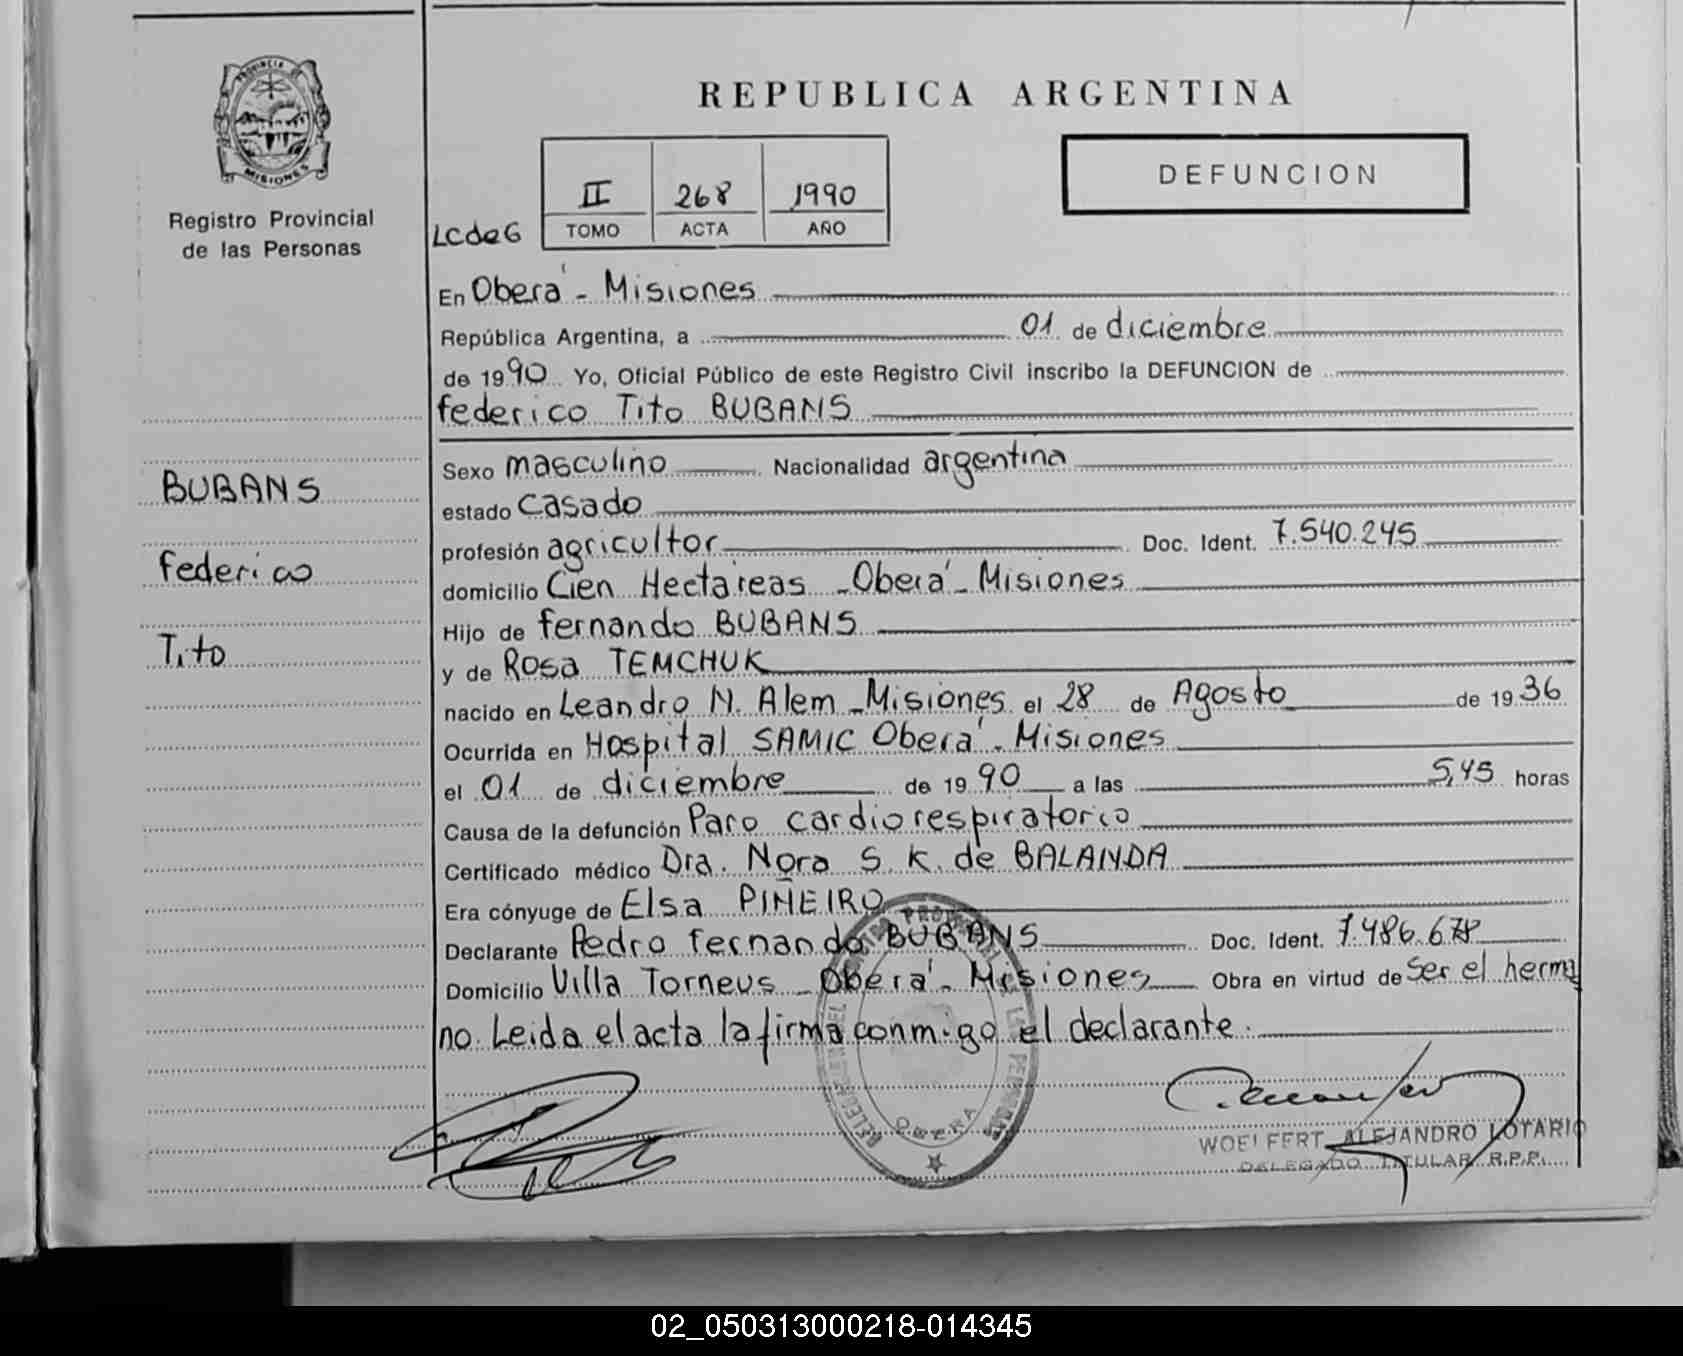 PROVINCIA DE
MISIONES
Registro Provincial
de las Personas
BUBANS
federico
Tito
REPUBLICA ARGENTINA
DEFUNCION
II 268 1990
TOMO ACTA AÑO
LCdeG
En Oberá - Misiones
República Argentina, a 01 de diciembre
de 1990 Yo, Oficial Público de este Registro Civil inscribo la DEFUNCION de
federico Tito BUBANS
Sexo masculino Nacionalidad argentina
estado casado
profesión agricultor Doc. Ident. 7.540.245
domicilio Cien Hectáreas - Oberá - Misiones
Hijo de fernando BUBANS
y de Rosa TEMCHUK
nacido en Leandro N. Alem - Misiones el 28 de Agosto de 1936
Ocurrida en Hospital SAMIC Oberá - Misiones
el 01 de diciembre de 1990 a las 5,45 horas
Causa de la defunción Paro cardiorespiratorio
Certificado médico Dra. Nora S. K. de BALANDA
Era cónyuge de Elsa PIÑEIRO
Declarante Pedro fernando BUBANS Doc. Ident. 7.486.678
Domicilio Villa Torneus - Oberá - Misiones Obra en virtud de ser el herma
no. Leida el acta la firma conmigo el declarante.
OBERA
WOELFERT ALEJANDRO LOTARIO
DELEGADO TITULAR R.P.P.
02_050313000218-014345